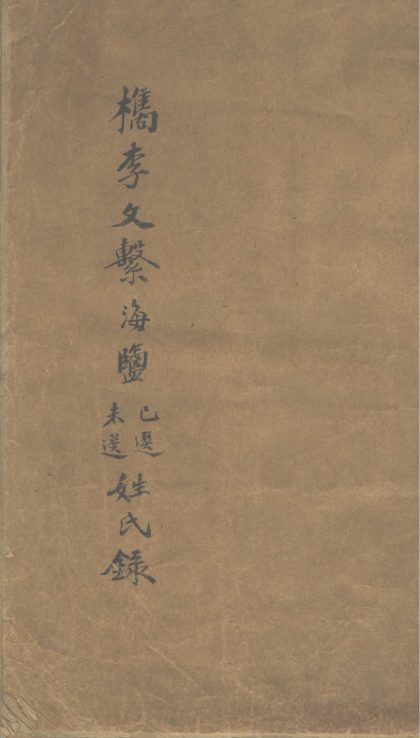 檇李文繫海鹽已選未選姓氏錄